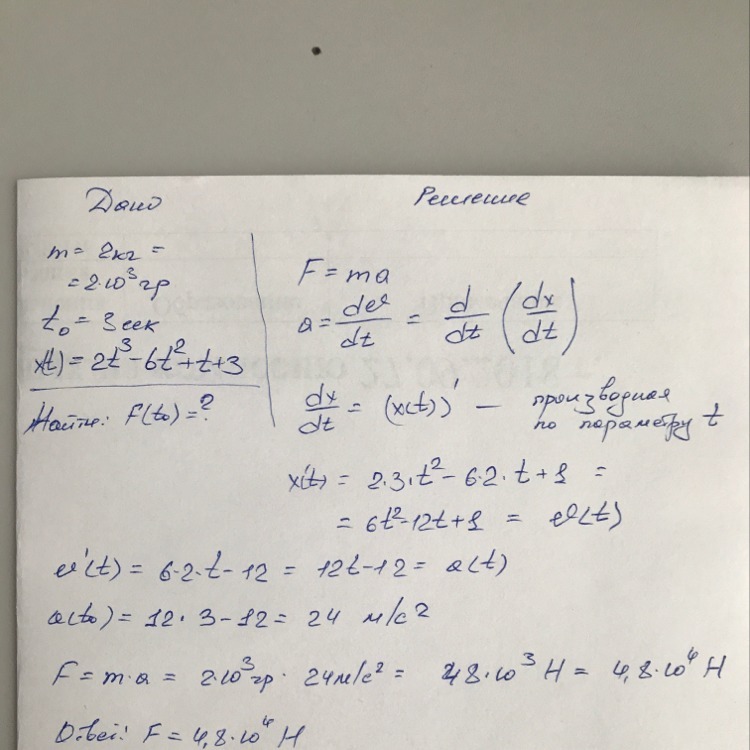 Дано
Решение
m = 2кг =
= 2·10³ гр
t₀ = 3 сек
x(t) = 2t³-6t²+t+3
Найти: F(t₀) = ?
F = ma
a = dv/dt = d/dt (dx/dt)
dx/dt = (x(t))' — производная
по параметру t
x'(t) = 2·3·t² - 6·2·t + 1 =
= 6t²-12t+1 = v(t)
v'(t) = 6·2·t - 12 = 12t-12 = a(t)
a(t₀) = 12·3-12 = 24 м/с²
F = m·a = 2·10³гр · 24м/с² = 48·10³ Н = 4,8·10⁴ Н
Ответ: F = 4,8·10⁴ Н